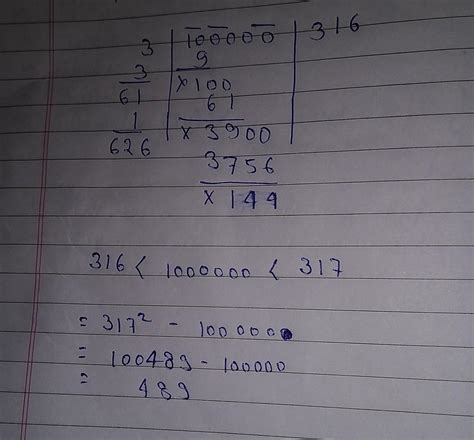 3 | 100000 | 316
3 9
61 ×100
1 61
626 ×3900
3756
×144
316 < 1000000 < 317
= 317² - 100000
= 100489 - 100000
= 489